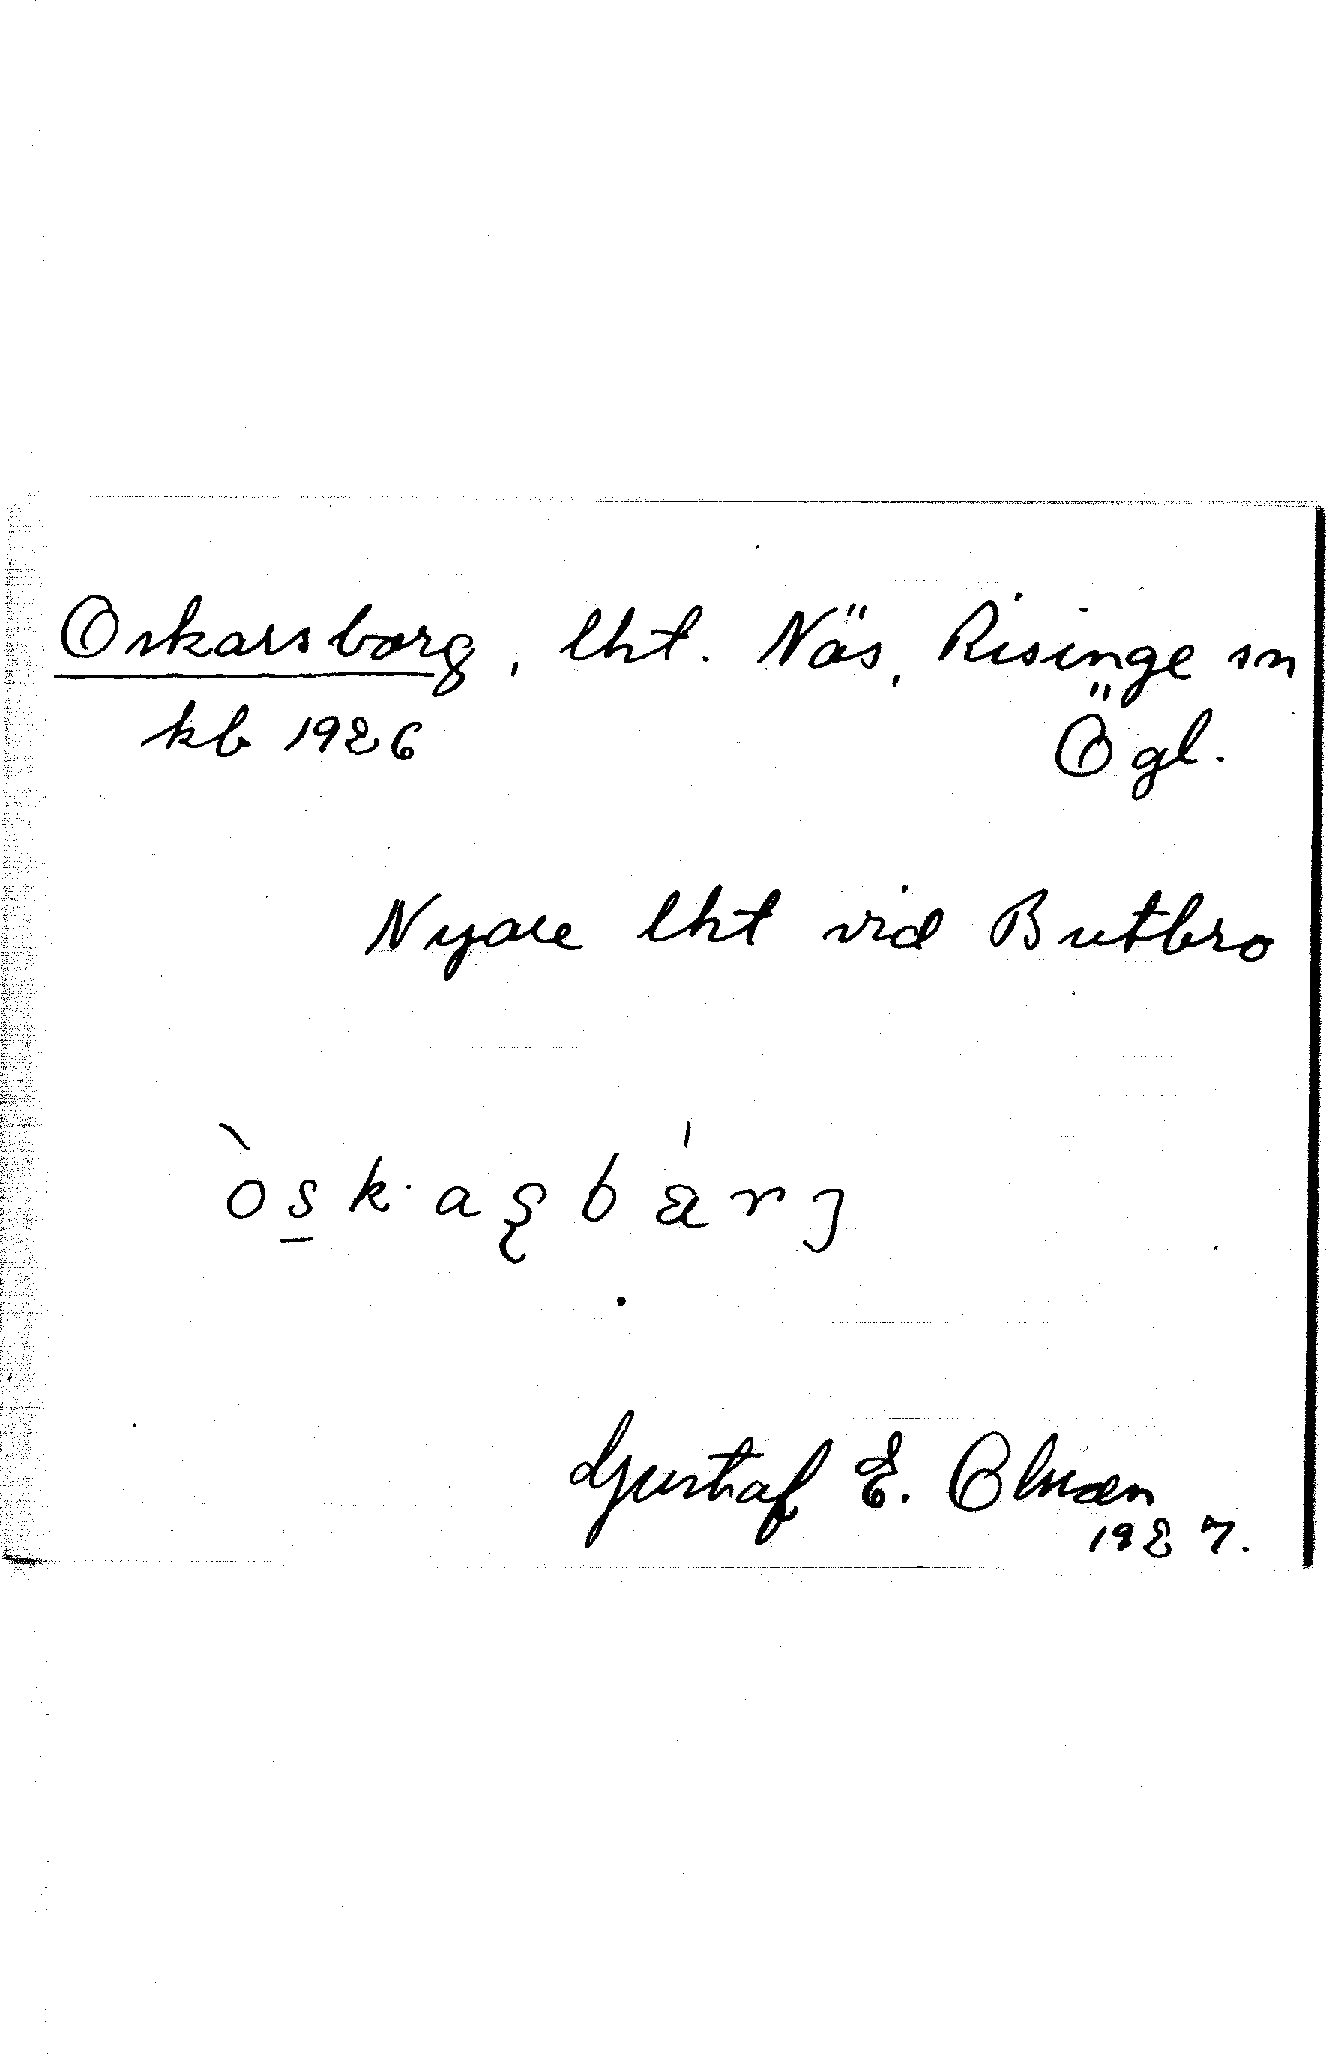 Oskarsborg, lht. Näs, Risinge sn
kb 1926 Ögl.
Nyare lht vid Butbro
òs̲k·aʂbárȷ
Gustaf E. Olmæn
1927.